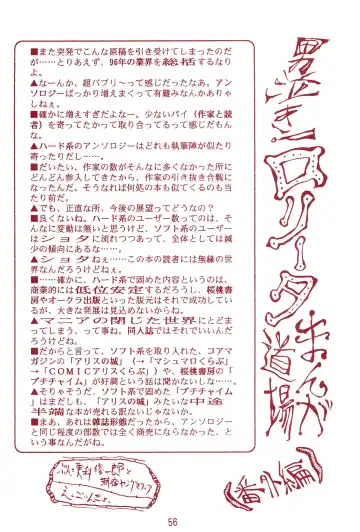 男泣き!ロリータまんが道場
(番外編)
■また突発でこんな原稿を引き受けてしまったのだ
が……とりあえず、96年の業界を総括するなり
よ。
▲なーんか、超バブリ~って感じだったなあ。アン
ソロジーばっかり増えまくって有難みなんかありゃ
しねぇ。
■確かに増えすぎだよなー。少ないパイ(作家と読
者)を寄ってたかって取り合ってるって感じだもん
な。
▲ハード系のアンソロジーはどれも執筆陣が似たり
寄ったりだし…。
■だいたい、作家の数がそんなに多くなかった所に
どんどん参入してきたから、作家の引き抜き合戦に
なったんだ。そうなれば何処の本も似てくるのも当
たり前だ。
▲でも、正直な所、今後の展望ってどうなの?
■良くないね。ハード系のユーザー数ってのは、そ
んなに変動は無いと思うけど、ソフト系のユーザー
はショタに流れつつあって、全体としては減
少の傾向にあるな……。
▲ショタねぇ……この本の読者には無縁の世
界なんだろうけどねぇ。
■……確かに、ハード系で固めた内容というのは、
商業的には低位安定するだろうし、桜桃書
房やオークラ出版といった版元はそれで成功してい
るが、大きな発展は見込めないからね。
▲マニアの閉じた世界にとどま
ってしまう、って事ね。同人誌ではそれでいいんだ
ろうけどね。
■だからと言って、ソフト系を取り入れた、コアマ
ガジンの「アリスの城」(→「マシュマロくらぶ」
→「COMICアリスくらぶ」)や、桜桃書房の「
プチチャイム」が好調という話は聞かないしな…。
▲そりゃそうだ、ソフト系で固めた「プチチャイム
」はまだしも、「アリスの城」みたいな中途
半端な本が売れる訳ないじゃないか。
■まあ、あれは雑誌形態だったから、アンソロジー
と同じ程度の部数では全く商売にならなかった、と
いう事なんだがね。
56